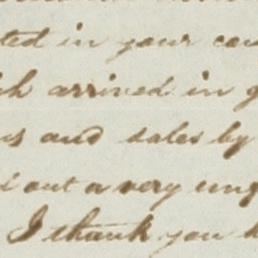 ted in your cou
ch arrived in g
ns and sales by
out a very ung
I thank you